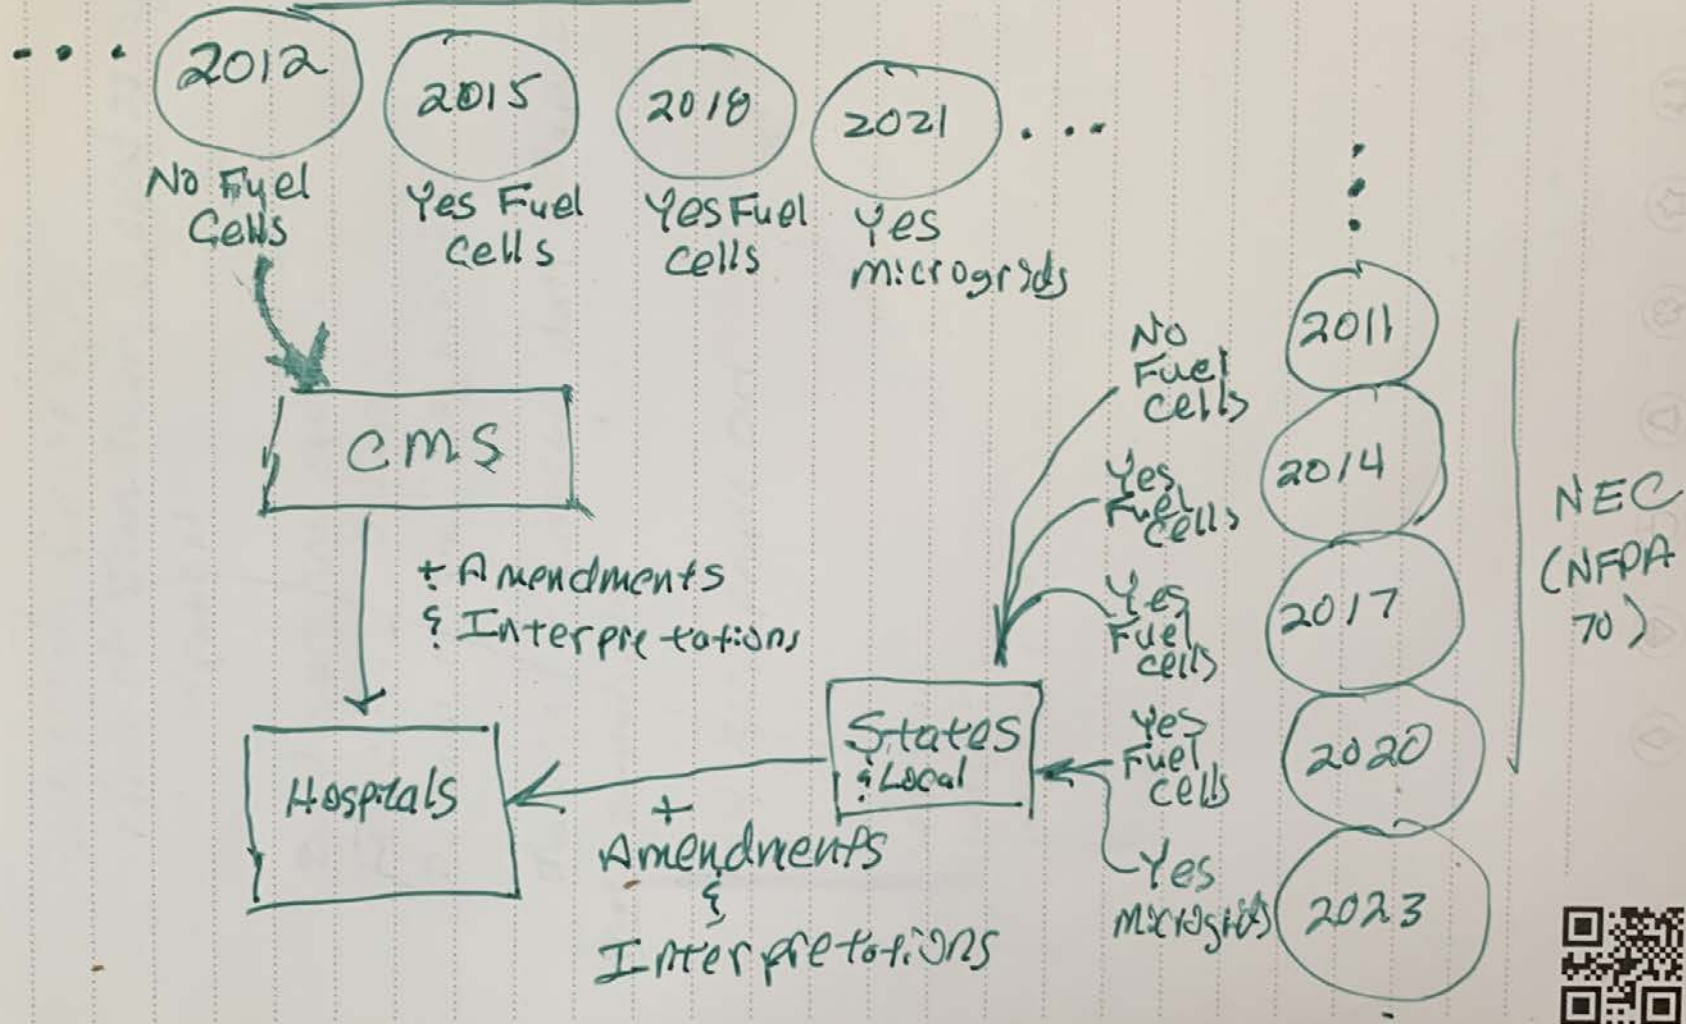 2012
2015
2018
2021
No Fuel
Cells
Yes Fuel
cells
Yes Fuel
cells
Yes
microgrids
CMS
+ Amendments
& Interpretations
Hospitals
States
& Local
+
Amendments
&
Interpretations
No
Fuel
cells
Yes
Fuel
cells
Yes
Fuel
cells
Yes
Fuel
cells
Yes
microgrids
2011
2014
2017
2020
2023
NEC
(NFPA
70)